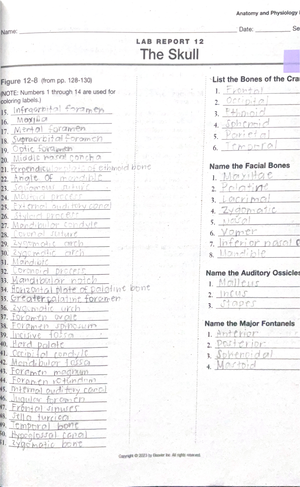 Anatomy and Physiology
Name:
Date:
LAB REPORT 12
The Skull
Figure 12-8 (from pp. 128-130)
(NOTE: Numbers 1 through 14 are used for
coloring labels.)
15. Infraorbital foramen
16. Maxilla
17. Mental foramen
18. Supraorbital foramen
19. Optic foramen
20. Middle nasal concha
21. Perpendicular of ethmoid bone
22. Angle of mandible
23. Squamous suture
24. Mastoid process
25. External auditory canal
26. Styloid process
27. Mandibular condyle
28. Coronal suture
29. Zygomatic arch
30. Zygomatic arch
31. Mandible
32. Coronoid process
33. Mandibular notch
34. Horizontal plate of palatine bone
35. Greater palatine foramen
36. Zygomatic arch
37. Foramen ovale
38. Foramen spinosum
39. Incisive fossa
40. Hard palate
41. Occipital condyle
42. Mandibular fossa
43. Foramen magnum
44. Foramen rotundum
45. Internal auditory canal
46. Jugular foramen
47. Frontal sinuses
48. Sella turcica
49. Temporal bone
50. Hypoglossal canal
51. Zygomatic bone
List the Bones of the Cra
1. Frontal
2. Occipital
3. Ethmoid
4. Sphenoid
5. Parietal
6. Temporal
Name the Facial Bones
1. Maxillae
2. Palatine
3. Lacrimal
4. Zygomatic
5. Nasal
6. Vomer
7. Inferior nasal c
8. Mandible
Name the Auditory Ossicles
1. Malleus
2. Incus
3. Stapes
Name the Major Fontanels
1. Anterior
2. Posterior
3. Sphenoidal
4. Mastoid
Copyright © 2023 by Elsevier Inc. All rights reserved.